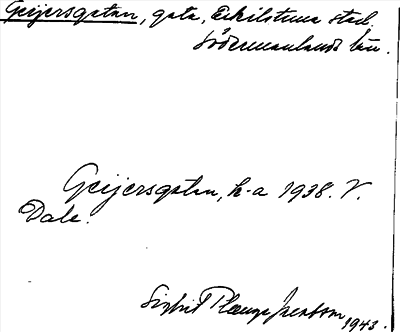 Geijersgatan, gata, Eskilstuna stad,
Södermanlands län.
Geijersgatan, k-a 1938. V.
Dale.
Sigfrid 1943.